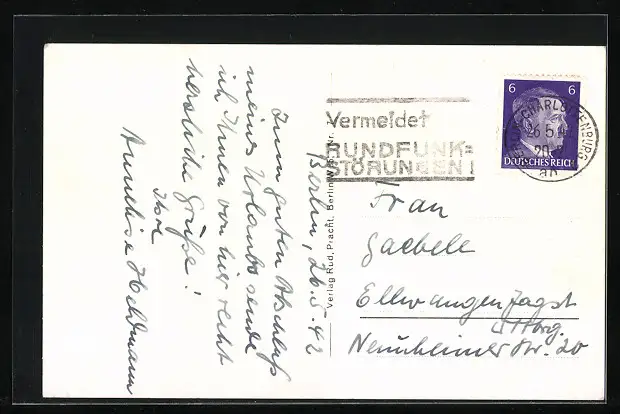 Berlin, 26.5.42
Zum guten Abschluß
meines Urlaubs sende
ich Ihnen von hier recht
herzliche Grüße!
Ihre
Verlag Rud. Pracht, Berlin
Vermeidet
RUNDFUNK=
STÖRUNGEN!
6 6
DEUTSCHES REICH
CHARLOTTENBURG
26.5.
Frau
Gaebele
Ellwangen Jagst
Württbg.
Neunheimer Str. 20